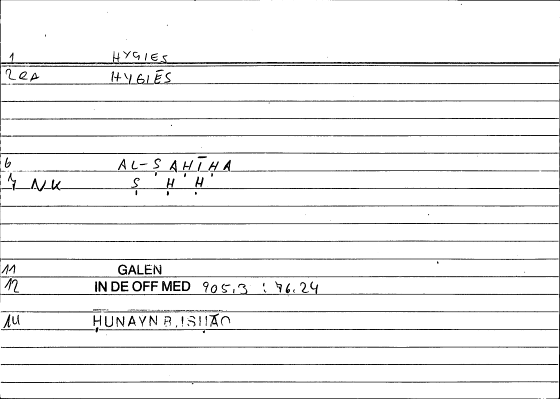 1 HYGIES
2RA HYGIĒS
6 AL-ṢAḤĪḤA
7 NK Ṣ Ḥ Ḥ
11 GALEN
12 IN DE OFF MED 905.3 : 76.24
14 ḤUNAYN B. ISḤĀQ